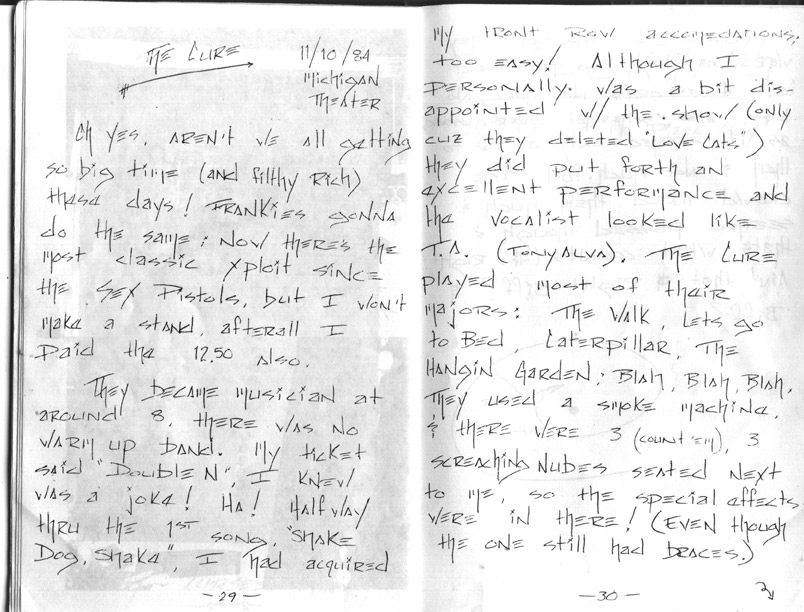 The Cure
11/10/84
Michigan
Theater
Oh yes, aren't we all getting
so big time (and filthy Rich)
these days! Frankies gonna
do the same; Now there's the
most classic xploit since
the Sex Pistols, but I won't
make a stand, afterall I
Paid the 12.50 also.
They became musician at
around 8, there was no
warm up band. My ticket
said "Double N", I knew
was a joke! Ha! Halfway
thru the 1st song, "Shake
Dog, Shake", I had acquired
-29-
my front row accomedations,
too easy! Although I
personally was a bit dis-
appointed w/ the show (only
cuz they deleted "Love Cats")
they did put forth an
excellent performance and
the vocalist looked like
T.A. (Tony Alva). The Cure
played most of their
majors: The Walk, Lets go
to Bed, Caterpillar, The
Hangin Garden; Blah, Blah, Blah.
They used a smoke machine,
& there were 3 (count 'em), 3
screaching nubes seated next
to me, so the special effects
were in there! (Even though
the one still had braces.)
-30-